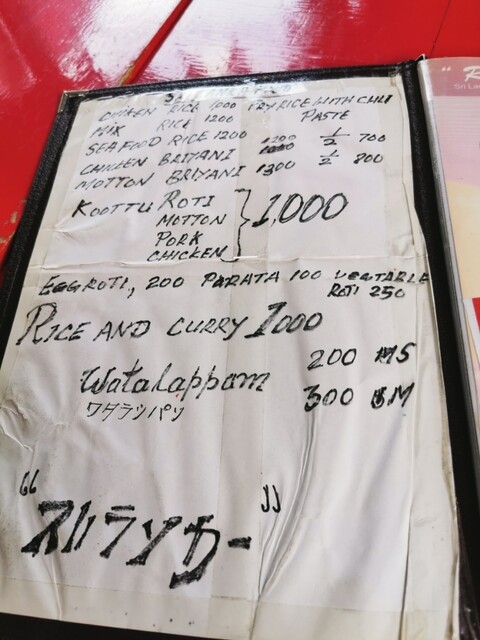 CHIKEN RICE 1000 FRY RICE WITH CHLI PASTE
MIX RICE 1200
SEAFOOD RICE 1200
CHIKEN BRIYANI 1200 ½ 700
MOTTON BRIYANI 1300 ½ 800
KOOTTU ROTI
MOTTON
PORK
CHICKEN
1,000
EGGROTI, 200 PARATA 100 VEGTABLE
ROTI 250
RICE AND CURRY 1000
Watalappam
ワタラッパン
200 MS
300 BM
“スリランカー”
Sri Lan